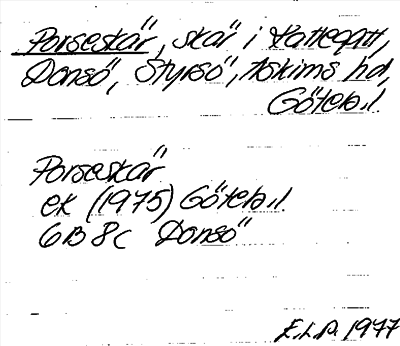 Porseskär, skär i Kattegatt,
Donsö, Styrsö, Askims hd,
Göteb.l
Porseskär
ek (1975) Göteb.l.
6B 8c Donsö
E.L.P. 1977